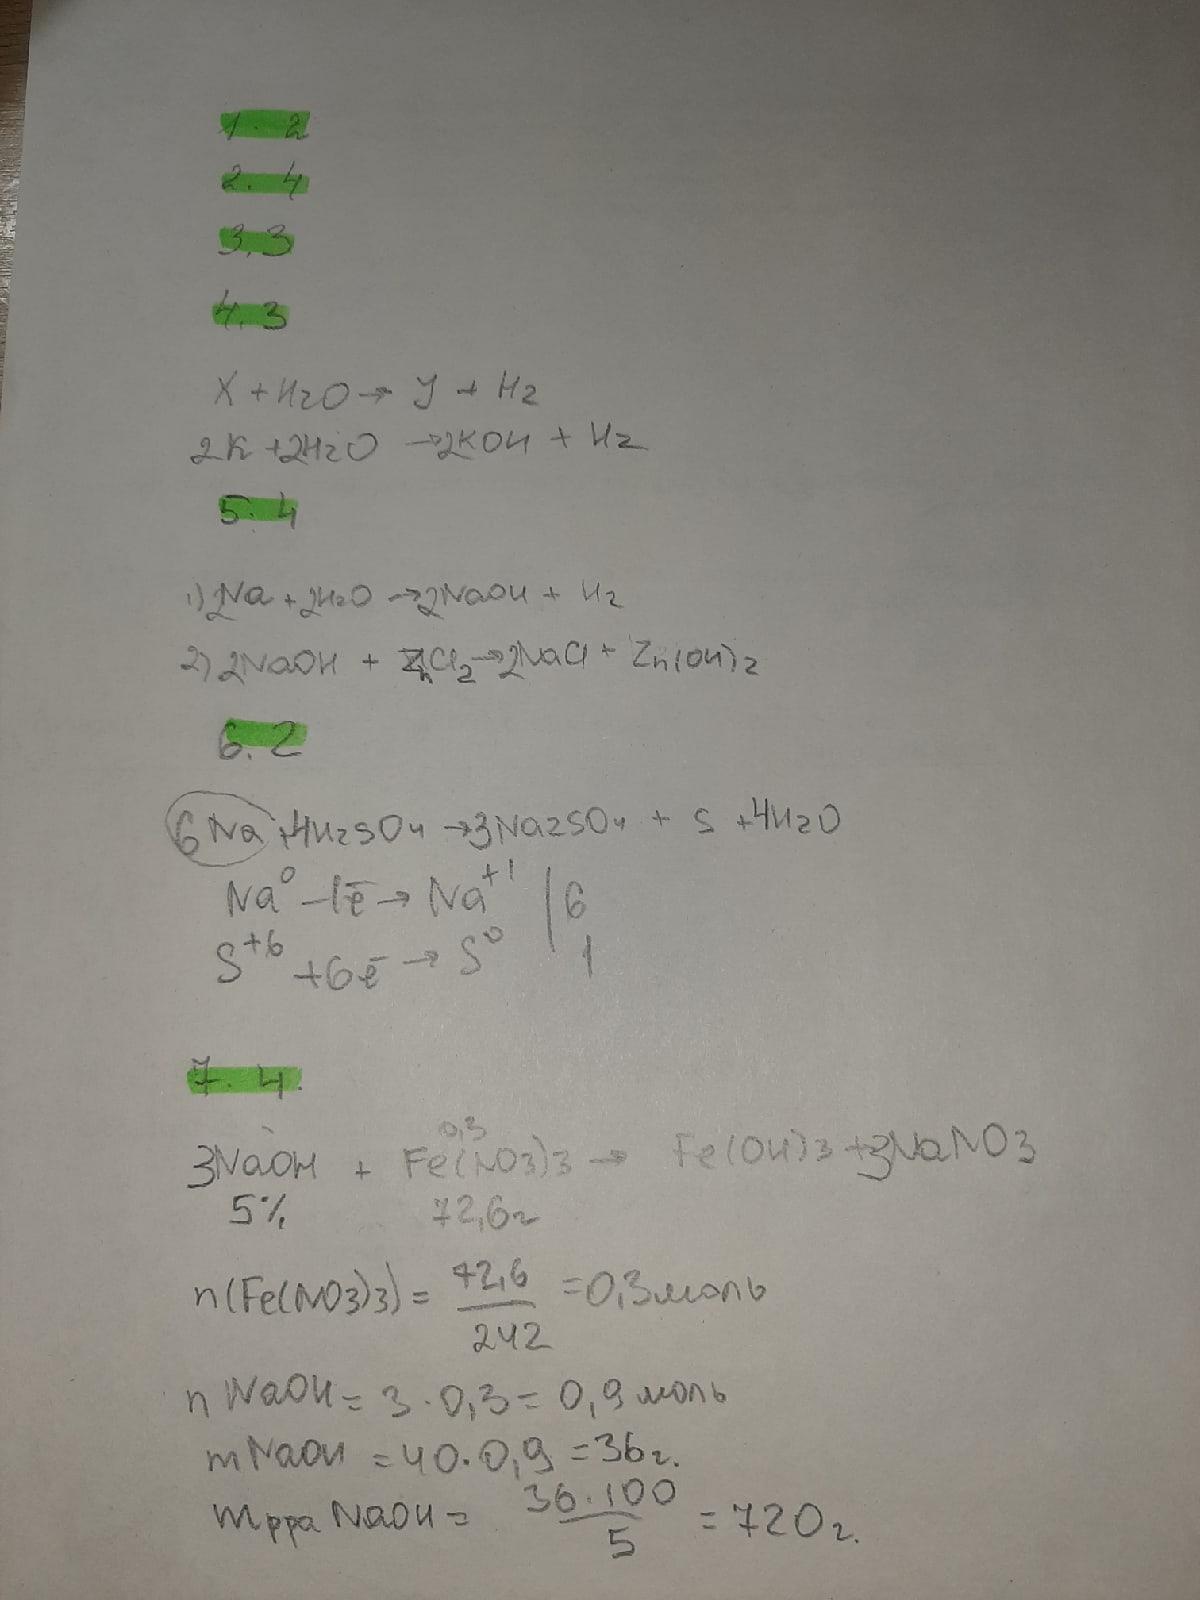 1. 2
2. 4
3. 3
4. 3
X + H2O → У + H2
2K + 2H2O → 2KOH + H2
5. 4
1) 2Na + 2H2O → 2NaOH + H2
2) 2NaOH + ZnCl2 → 2NaCl + Zn(OH)2
6. 2
6Na + 4H2SO4 → 3Na2SO4 + S + 4H2O
Na⁰ – 1ē → Na⁺¹ | 6
S⁺⁶ + 6ē → S⁰ 1
7. 4.
0,3
3NaOH + Fe(NO3)3 → Fe(OH)3 + 3NaNO3
5% 72,6г
n(Fe(NO3)3) = 72,6 / 242 = 0,3 моль
n NaOH = 3 · 0,3 = 0,9 моль
m NaOH = 40 · 0,9 = 36 г.
m рра NaOH = 36 · 100 / 5 = 720 г.